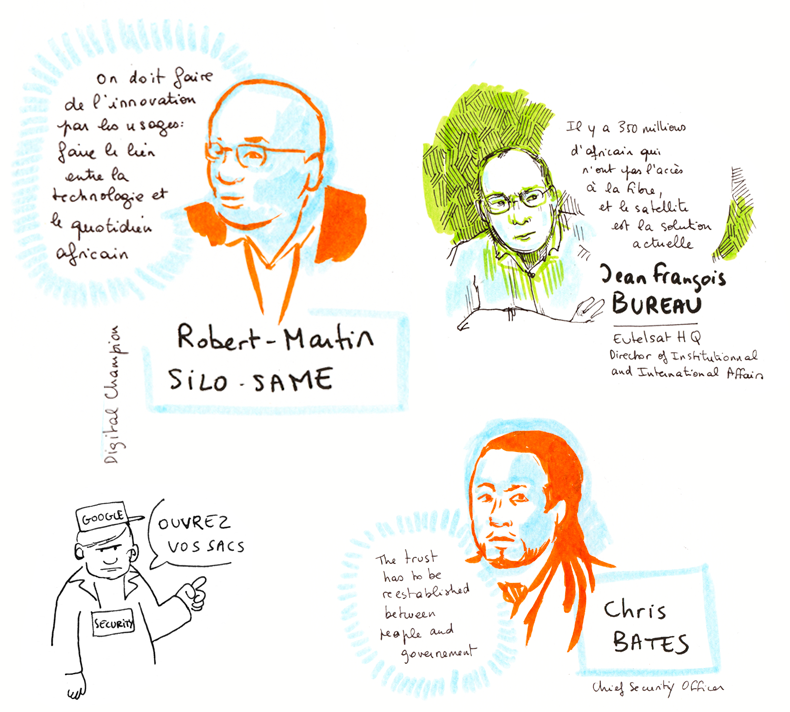 On doit faire
de l'innovation
par les usages:
faire le lien
entre la
technologie et
le quotidien
africain
Digital Champion
Robert-Martin
SILO-SAME
Il y a 350 millions
d'africain qui
n'ont pas l'accès
à la fibre,
et le satellite
est la solution
actuelle
Jean François
BUREAU
Eutelsat HQ
Director of Institutionnal
and International Affairs
GOOGLE
OUVREZ
VOS SACS
SECURITY
The trust
has to be
reestablished
between
people and
governement
Chris
BATES
Chief Security Officer